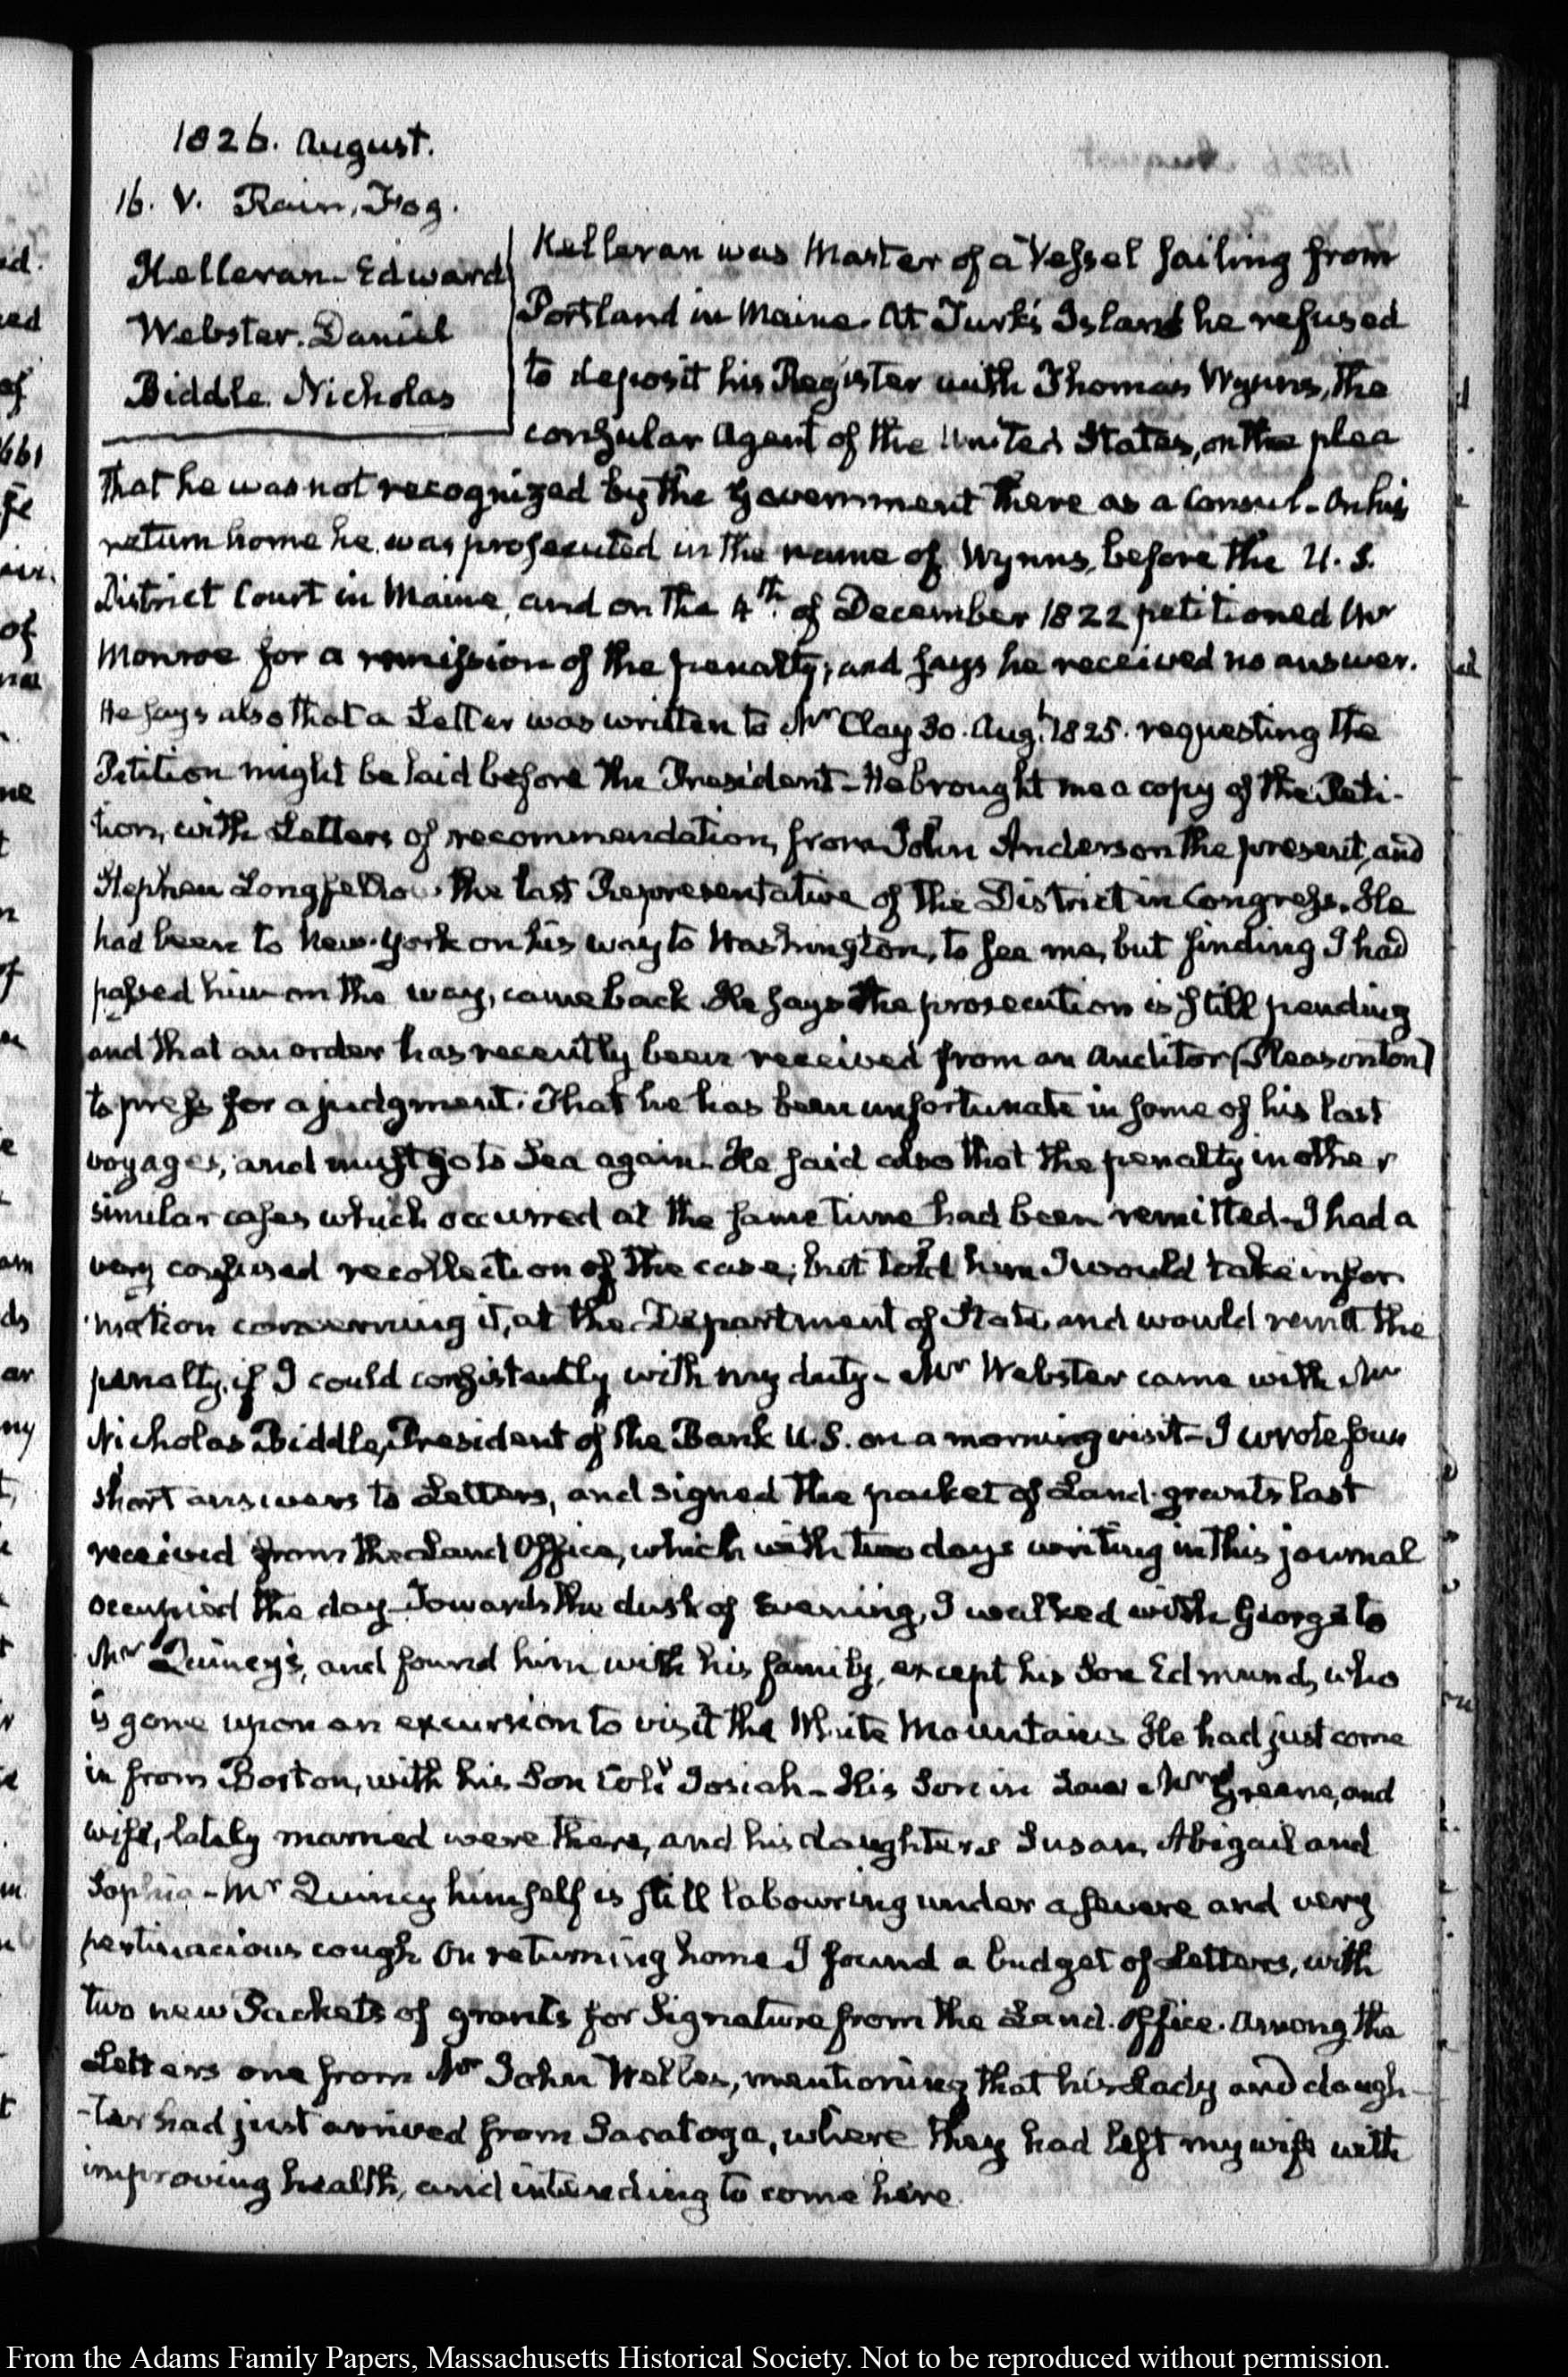 1826. August.
16. V. Rain, Fog.
Kelleran. Edward
Webster. Daniel
Biddle. Nicholas
Kelleran was Master of a Vessel sailing from
Portland in Maine. At Turk's Island he refused
to deposit his Register with Thomas Wynns, the
consular Agent of the United States, on the plea
that he was not recognized by the Government there as a Consul - On his
return home he was prosecuted in the name of Wynns, before the U. S.
District Court in Maine, and on the 4th. of December 1822 petitioned Mr
Monroe for a remission of the penalty; and says he received no answer.
He says also that a Letter was written to Mr Clay 30. Augt. 1825. requesting the
Petition might be laid before the President - He brought me a copy of the Peti-
tion, with Letters of recommendation, from John Anderson the present, and
Stephen Longfellow the last Representative of the District in Congress. He
had been to New-York on his way to Washington, to see me, but finding I had
passed him on the way, came back. He says the prosecution is still pending
and that an order has recently been received from an Auditor (Pleasonton)
to press for a judgment. That he has been unfortunate in some of his last
voyages, and must go to Sea again. He said also that the penalty in other
similar cases which occurred at the same time had been remitted - I had a
very confused recollection of the case; but told him I would take infor
mation concerning it, at the Department of State, and would remit the
penalty, if I could consistently with my duty - Mr Webster came with Mr
Nicholas Biddle, President of the Bank U. S. on a morning visit - I wrote four
short answers to Letters, and signed the packet of Land-grants last
received from the Land Office, which with two days writing in this journal
occupied the day - Towards the dusk of Evening, I walked with George to
Mr Quincy's, and found him with his family, except his Son Edmund, who
is gone upon an excursion to visit the White Mountains. He had just come
in from Boston, with his Son Coll. Josiah - His Son in Law Mr Greene, and
wife, lately married were there, and his daughters Susan, Abigail and
Sophia - Mr Quincy himself is still labouring under a severe and very
pertinacious cough. On returning home I found a budget of Letters, with
two new Packets of grants for Signature from the Land. Office. Among the
Letters one from Mr John Welles, mentioning that his Lady and daugh-
-ter had just arrived from Saratoga, where they had left my wife with
improving health, and intending to come here.
From the Adams Family Papers, Massachusetts Historical Society. Not to be reproduced without permission.